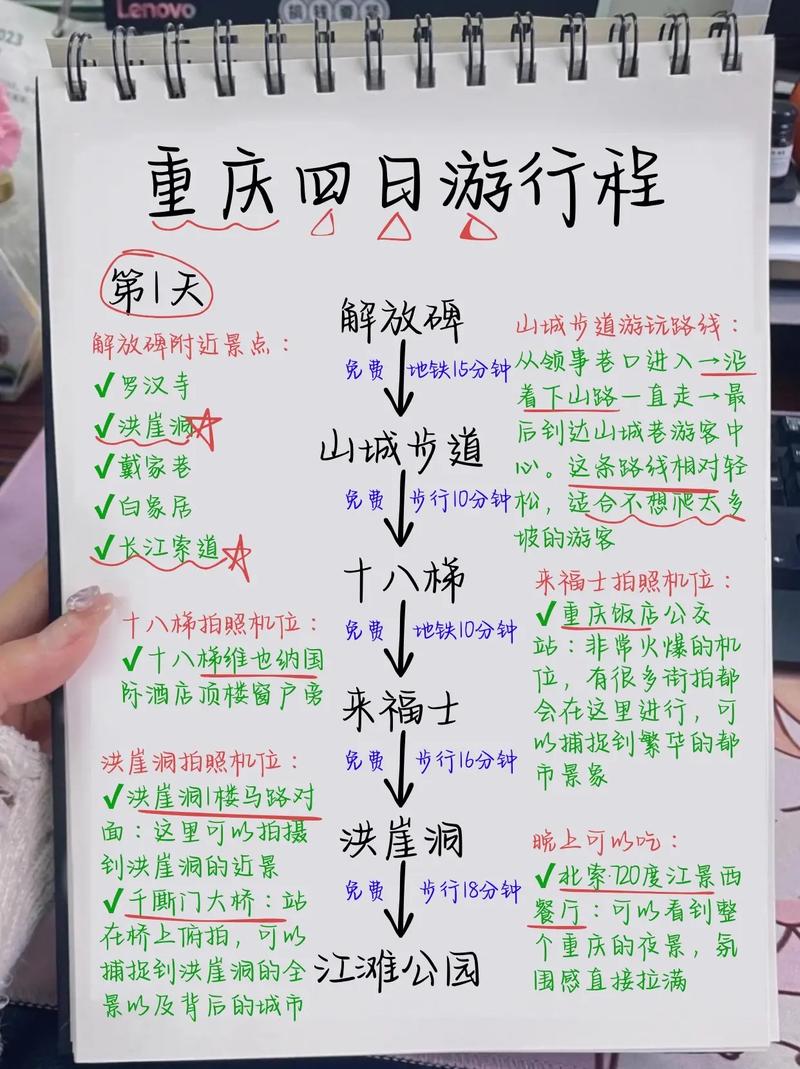 Lenovo
2023
重庆四日游行程
第1天
解放碑附近景点：
✓罗汉寺
✓洪崖洞
✓戴家巷
✓白象居
✓长江索道
十八梯拍照机位：
✓十八梯维也纳国
际酒店顶楼窗户旁
洪崖洞拍照机位：
✓洪崖洞1楼马路对
面：这里可以拍摄
到洪崖洞的近景
✓千厮门大桥：站
在桥上俯拍，可以
捕捉到洪崖洞的全
景以及背后的城市
解放碑
免费 地铁15分钟
山城步道
免费 步行10分钟
十八梯
免费 地铁10分钟
来福士
免费 步行16分钟
洪崖洞
免费 步行18分钟
江滩公园
山城步道游玩路线：
从领事巷口进入→沿
着下山路一直走→最
后到达山城巷游客中
心。这条路线相对轻
松，适合不想爬太多
坡的游客
来福士拍照机位：
✓重庆饭店公交
站：非常火爆的机
位，有很多街拍都
会在这里进行，可
以捕捉到繁华的都
市景象
晚上可以吃：
✓北索·720度江景西
餐厅：可以看到整
个重庆的夜景，氛
围感直接拉满